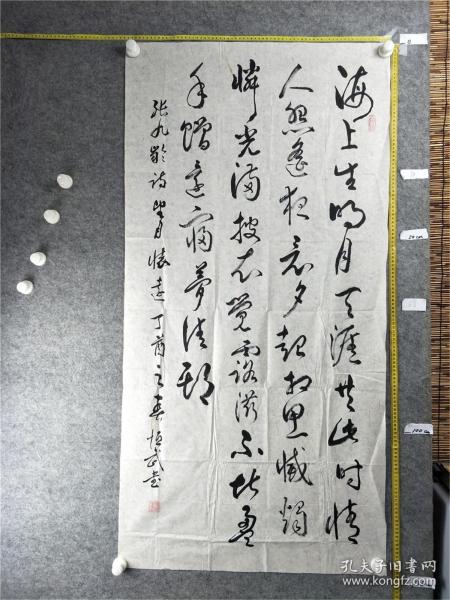 海上生明月天涯共此时情
人怨遥夜竟夕起相思滅燭
憐光满披衣覺露滋不堪盈
手赠還寝夢佳期
张九龄诗望月怀远丁酉之春恒武书
50cm
100cm
孔夫子旧书网
www.kongfz.com